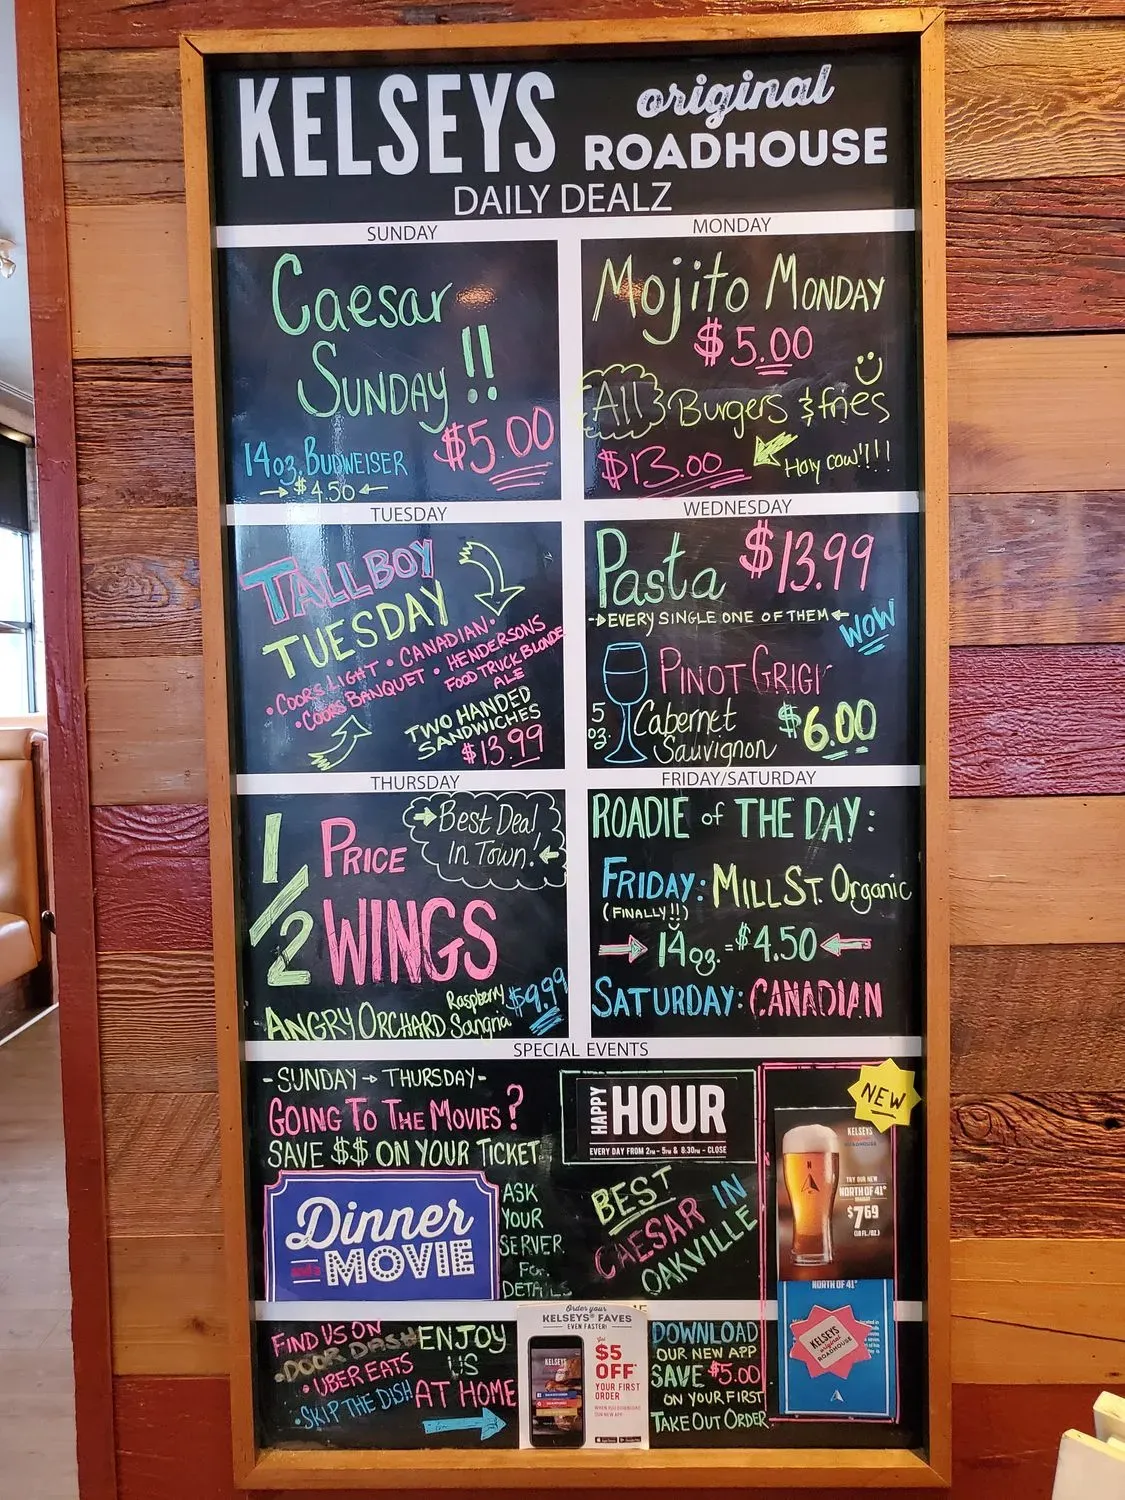 KELSEYS original
ROADHOUSE
DAILY DEALZ
SUNDAY
Caesar
SUNDAY!!
$5.00
14oz. BUDWEISER
$4.50
MONDAY
Mojito MONDAY
$5.00
All Burgers & fries
$13.00
Holy cow!!!!
TUESDAY
TALLBOY
TUESDAY
• COORS LIGHT • CANADIAN •
• COORS BANQUET • HENDERSONS
FOOD TRUCK BLONDE
ALE
TWO HANDED
SANDWICHES
$13.99
WEDNESDAY
Pasta $13.99
EVERY SINGLE ONE OF THEM
WOW
PINOT GRIGI
5 oz.
Cabernet
Sauvignon
$6.00
THURSDAY
1/2 PRICE
WINGS
Best Deal
In Town!
ANGRY ORCHARD Raspberry
Sangria
$9.99
FRIDAY/SATURDAY
ROADIE of THE DAY:
FRIDAY: MILL ST. Organic
(FINALLY!!)
14oz. = $4.50
SATURDAY: CANADIAN
SPECIAL EVENTS
- SUNDAY → THURSDAY -
GOING TO THE MOVIES?
SAVE $$ ON YOUR TICKET
Dinner
and a
MOVIE
ASK
YOUR
SERVER
For
DETAILS
HAPPY HOUR
EVERY DAY FROM 2PM - 5PM & 8:30PM - CLOSE
BEST
CAESAR IN
OAKVILLE
NEW
KELSEYS
ROADHOUSE
TRY OUR NEW
NORTH OF 41°
$7.69
NORTH OF 41°
KELSEYS
original
ROADHOUSE
FIND US ON
• DOOR DASH
• UBER EATS
• SKIP THE DISH
ENJOY
US
AT HOME
Order your
KELSEYS® FAVES
EVEN FASTER!
KELSEYS
Get
$5
OFF*
YOUR FIRST
ORDER
WHEN YOU DOWNLOAD
OUR NEW APP
DOWNLOAD
OUR NEW APP
SAVE $5.00
ON YOUR FIRST
TAKE OUT ORDER